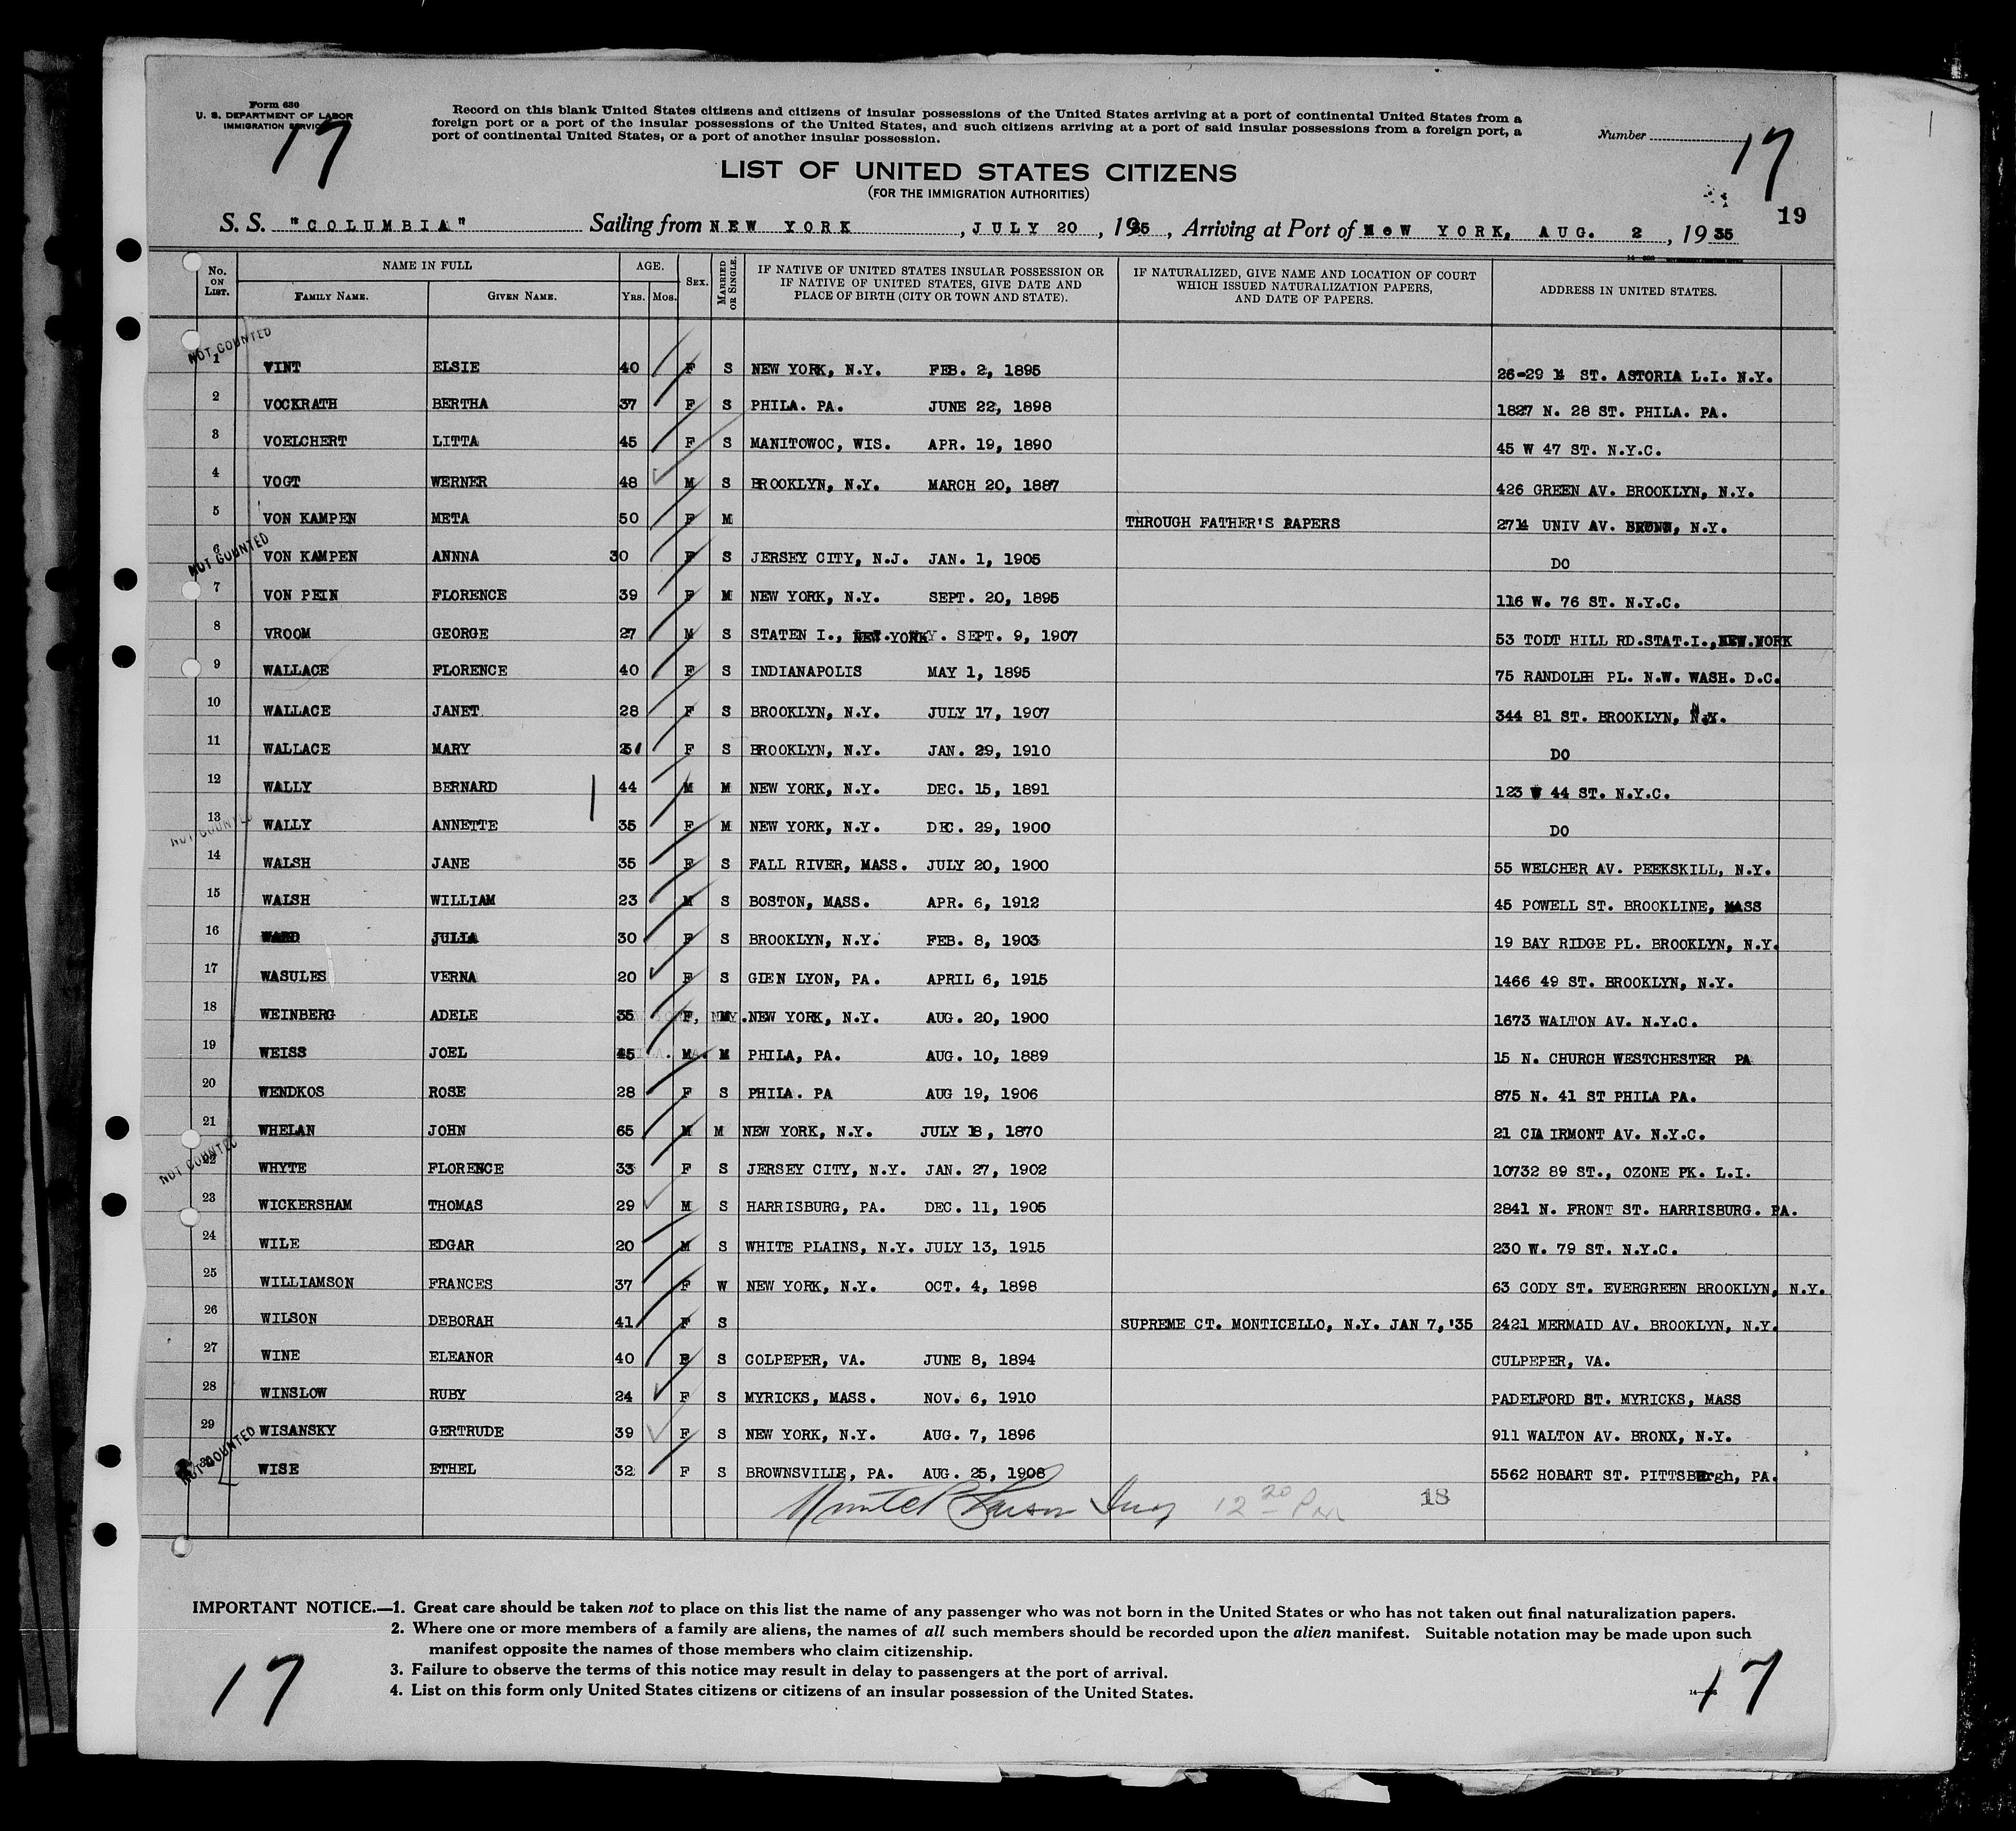 Form 630
U. S. DEPARTMENT OF LABOR
IMMIGRATION SERVICE
17
Record on this blank United States citizens and citizens of insular possessions of the United States arriving at a port of continental United States from a
foreign port or a port of the insular possessions of the United States, and such citizens arriving at a port of said insular possessions from a foreign port, a
port of continental United States, or a port of another insular possession.
Number 17
LIST OF UNITED STATES CITIZENS
(FOR THE IMMIGRATION AUTHORITIES)
19
S. S. "COLUMBIA" Sailing from NEW YORK, JULY 20, 1935, Arriving at Port of NEW YORK, AUG. 2, 1935
No. ON LIST. NAME IN FULL FAMILY NAME. GIVEN NAME. AGE. YRS. MOS. SEX. MARRIED OR SINGLE. IF NATIVE OF UNITED STATES INSULAR POSSESSION OR IF NATIVE OF UNITED STATES, GIVE DATE AND PLACE OF BIRTH (CITY OR TOWN AND STATE). IF NATURALIZED, GIVE NAME AND LOCATION OF COURT WHICH ISSUED NATURALIZATION PAPERS, AND DATE OF PAPERS. ADDRESS IN UNITED STATES.
NOT COUNTED
1 VINT ELSIE 40 F S NEW YORK, N.Y. FEB. 2, 1895 26-29 14 ST. ASTORIA L.I. N.Y.
2 VOCKRATH BERTHA 37 F S PHILA. PA. JUNE 22, 1898 1827 N. 28 ST. PHILA. PA.
3 VOELCHERT LITTA 45 F S MANITOWOC, WIS. APR. 19, 1890 45 W 47 ST. N.Y.C.
4 VOGT WERNER 48 M S BROOKLYN, N.Y. MARCH 20, 1887 426 GREEN AV. BROOKLYN, N.Y.
5 VON KAMPEN META 50 F M THROUGH FATHER'S PAPERS 2714 UNIV AV. N.Y.
NOT COUNTED
6 VON KAMPEN ANNNA 30 F S JERSEY CITY, N.J. JAN. 1, 1905 DO
7 VON PEIN FLORENCE 39 F M NEW YORK, N.Y. SEPT. 20, 1895 116 W. 76 ST. N.Y.C.
8 VROOM GEORGE 27 M S STATEN I., NEW YORK SEPT. 9, 1907 53 TODT HILL RD.STAT.I.,NEW.YORK
9 WALLACE FLORENCE 40 F S INDIANAPOLIS MAY 1, 1895 75 RANDOLPH PL. N.W. WASH. D.C.
10 WALLACE JANET 28 F S BROOKLYN, N.Y. JULY 17, 1907 344 81 ST. BROOKLYN, N.Y.
11 WALLACE MARY F S BROOKLYN, N.Y. JAN. 29, 1910 DO
12 WALLY BERNARD 44 M M NEW YORK, N.Y. DEC. 15, 1891 123 W 44 ST. N.Y.C.
13 WALLY ANNETTE 35 F M NEW YORK, N.Y. DEC. 29, 1900 DO
NOT COUNTED
14 WALSH JANE 35 F S FALL RIVER, MASS. JULY 20, 1900 55 WELCHER AV. PEEKSKILL, N.Y.
15 WALSH WILLIAM 23 M S BOSTON, MASS. APR. 6, 1912 45 POWELL ST. BROOKLINE, MASS
16 WARD JULIA 30 F S BROOKLYN, N.Y. FEB. 8, 1903 19 BAY RIDGE PL. BROOKLYN, N.Y.
17 WASULES VERNA 20 F S GLEN LYON, PA. APRIL 6, 1915 1466 49 ST. BROOKLYN, N.Y.
18 WEINBERG ADELE 35 F M NEW YORK, N.Y. AUG. 20, 1900 1673 WALTON AV. N.Y.C.
19 WEISS JOEL 45 M M PHILA, PA. AUG. 10, 1889 15 N. CHURCH WESTCHESTER PA
20 WENDKOS ROSE 28 F S PHILA. PA AUG 19, 1906 875 N. 41 ST PHILA PA.
21 WHELAN JOHN 65 M M NEW YORK, N.Y. JULY 18, 1870 21 CLAIRMONT AV. N.Y.C.
NOT COUNTED
22 WHYTE FLORENCE 33 F S JERSEY CITY, N.Y. JAN. 27, 1902 10732 89 ST., OZONE PK. L.I.
23 WICKERSHAM THOMAS 29 M S HARRISBURG, PA. DEC. 11, 1905 2841 N. FRONT ST. HARRISBURG. PA.
24 WILE EDGAR 20 M S WHITE PLAINS, N.Y. JULY 13, 1915 230 W. 79 ST. N.Y.C.
25 WILLIAMSON FRANCES 37 F W NEW YORK, N.Y. OCT. 4, 1898 63 CODY ST. EVERGREEN BROOKLYN, N.Y.
26 WILSON DEBORAH 41 F S SUPREME CT. MONTICELLO, N.Y. JAN 7,'35 2421 MERMAID AV. BROOKLYN, N.Y.
27 WINE ELEANOR 40 F S COLPEPER, VA. JUNE 8, 1894 CULPEPER, VA.
28 WINSLOW RUBY 24 F S MYRICKS, MASS. NOV. 6, 1910 PADELFORD ST. MYRICKS, MASS
29 WISANSKY GERTRUDE 39 F S NEW YORK, N.Y. AUG. 7, 1896 911 WALTON AV. BRONX, N.Y.
NOT COUNTED
WISE ETHEL 32 F S BROWNSVILLE, PA. AUG. 25, 1908 5562 HOBART ST. PITTSBurgh, PA.
12 20 18
IMPORTANT NOTICE.—1. Great care should be taken not to place on this list the name of any passenger who was not born in the United States or who has not taken out final naturalization papers.
2. Where one or more members of a family are aliens, the names of all such members should be recorded upon the alien manifest. Suitable notation may be made upon such
manifest opposite the names of those members who claim citizenship.
3. Failure to observe the terms of this notice may result in delay to passengers at the port of arrival.
4. List on this form only United States citizens or citizens of an insular possession of the United States.
17 17